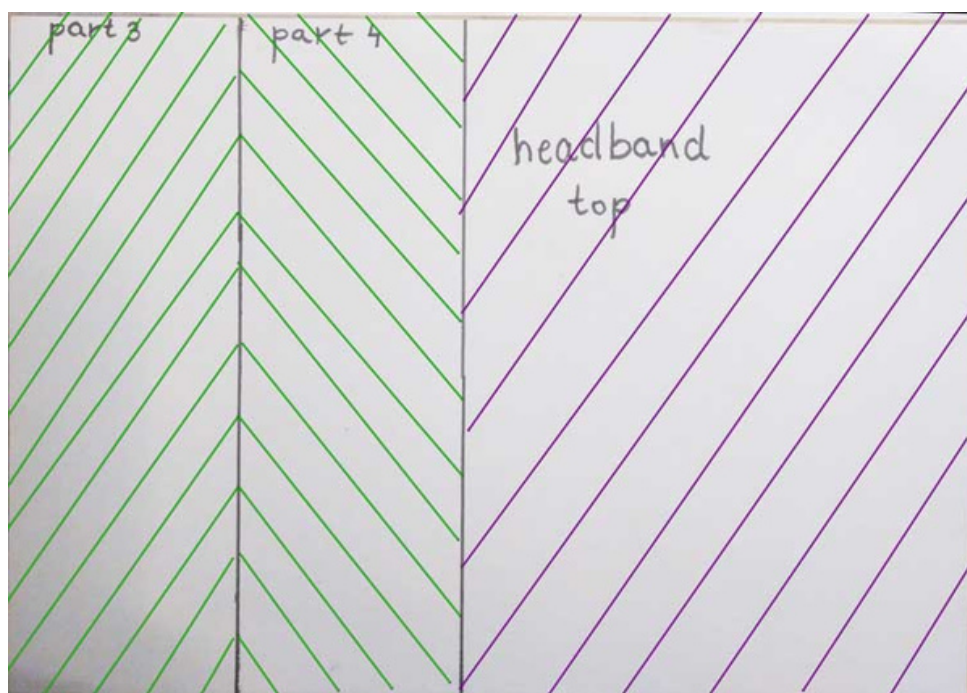 part 3
part 4
headband
top